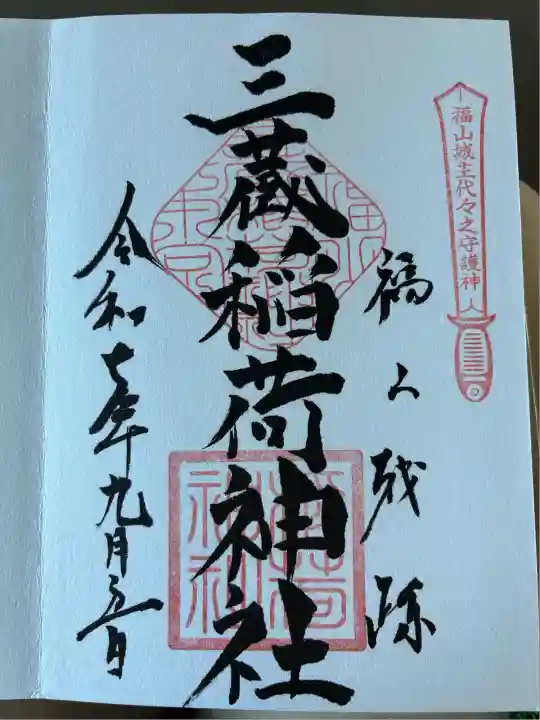 福山城主代々之守護神
福山城跡
三蔵稲荷神社
令和七年九月五日